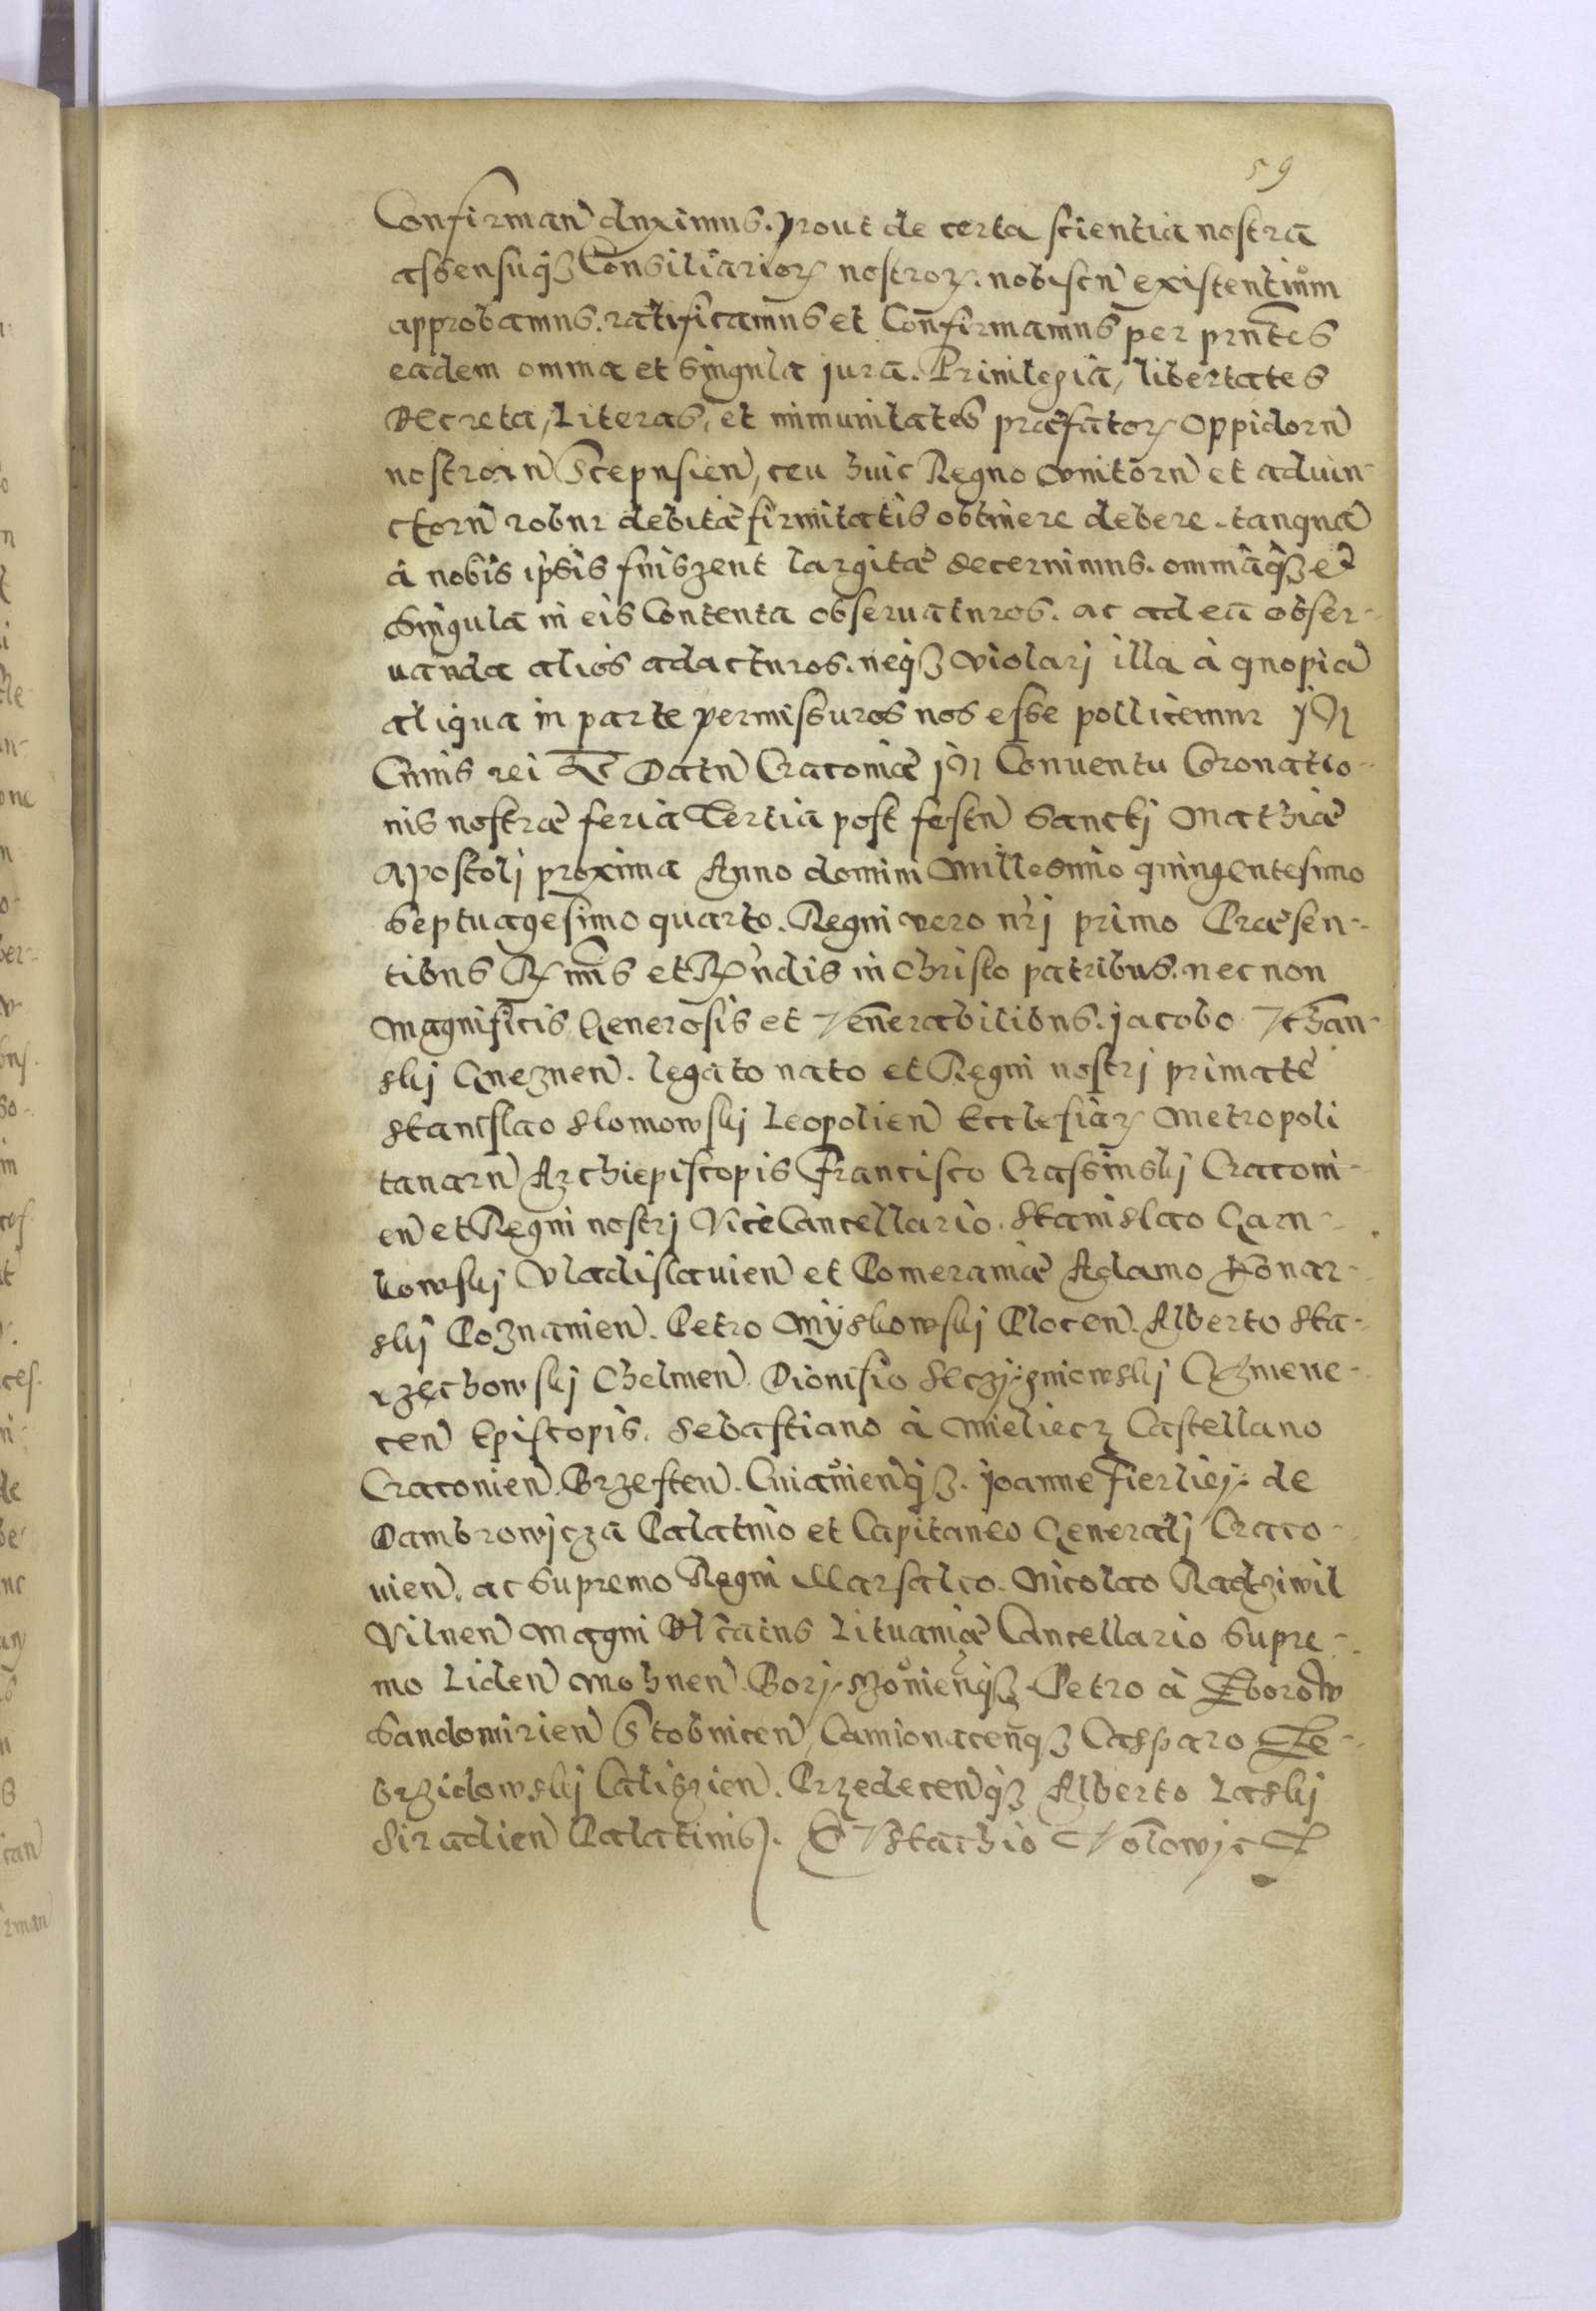 59
Confirman̄ duximus. prout de certa scientia nostra
assensuqꝫ Consiliarioꝝ nostroꝝ. nobiscū existentium
approbamus. ratificamus et Confirmamus per prn̄tes
eadem omnia et singula jura. Priuilegia, libertates
Decreta, Literas, et immunitates præfatoꝝ Oppidorū
nostrorū Scepusien̄, ceu huic Regno vnitorū et aduin-
ctorū robur debitæ firmitatis obtinere debere. tanquā
à nobis ipsis fuiszent largitæ decernimus. omniaqꝫ et
singula in eis Contenta obseruaturos. ac ad ea obser-
uanda alios adacturos. neqꝫ violarj illa à quopiā
aliqua in parte permissuros nos esse pollicemur jN
Cuius rei &c Datū Cracouiæ jN Conuentu Coronatio-
nis nostræ feria Tertia post festū Sanctj Mathiæ
Apostolj proxima Anno domini Millesimo quingentesimo
Septuagesimo quarto. Regni vero nr̄j primo Præsen-
tibus Rmīs et Rn̄dis in Christo patribus. nec non
Magnificis Generosis et Venerabilibus. jacobo Vchan-
skj Gneznen̄. legato nato et Regni nostrj primate
Stanislao Slomowskj Leopolien̄ Ecclesiaꝝ Metropoli
tanarū Archiepiscopis Francisco Crassinskj Cracoui-
en̄ et Regni nostrj ViceCancellario. Stanislao Carn-
kowskj Vladislauien̄ et Pomeraniæ Adamo Konar-
skj Poznanien̄. Petro Myskowskj Plocen̄. Alberto Sta-
rzechowskj Chelmen̄. Dionisio Seczygniowskj Czmene-
cen̄ Episcopis. Sebastiano à Mieliecz Castellano
Cracouien̄. Brzesten̄. Cuiauien̄qꝫ. joanne Fierliej de
Dambrowicza Palatino et Capitaneo Generalj Craco-
uien̄. ac Supremo Regni Marsalco. Nicolao Radziwil
Vilnen̄ Magni Dūcatus Lituaniæ Cancellario Supre-
mo Liden̄ Mohnen̄. Borjszouien̄qꝫ Petro à Zborow
Sandomirien̄ Stobnicen̄, Camionacen̄qꝫ Casparo Ze-
brzidowskj Caliszien̄. Przedecen̄qꝫ Alberto Laskj
Siradien̄ Palatinis. EVstachio Volowicz